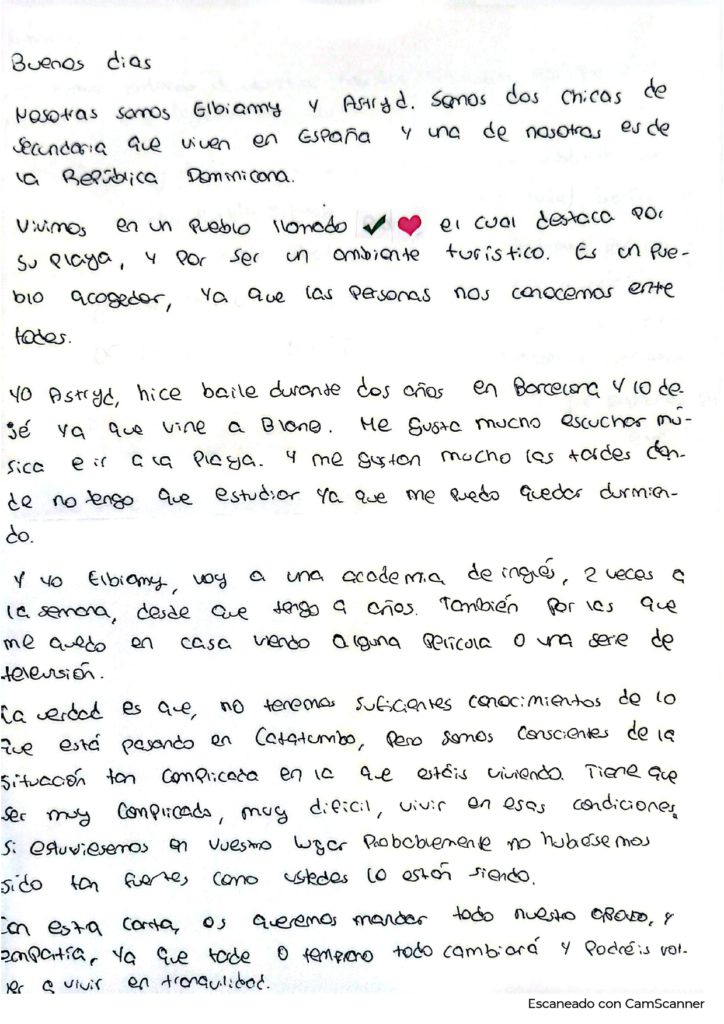 Buenos dias
Nosotras somos Elbianny y Astryd. Somos dos chicas de
secundaria que viven en España y una de nosotras es de
la República Dominicana.
Vivimos en un pueblo llamado ✔❤ el cual destaca por
su playa, y por ser un ambiente turístico. Es un pue-
blo acogedor, ya que las personas nos conocemos entre
todos.
Yo Astryd, hice baile durante dos años en Barcelona y lo de
jé ya que vine a Blane. Me gusta mucho escuchar mú-
sica e ir a la playa. Y me gustan mucho las tardes don-
de no tengo que estudiar ya que me puedo quedar durmien-
do.
Y yo Elbianny, voy a una academia de inglés, 2 veces a
la semana, desde que tengo 9 años. También por las que
me quedo en casa viendo alguna película o una serie de
televisión.
La verdad es que, no tenemos suficientes conocimientos de lo
que está pasando en Catatumbo, pero somos conscientes de la
situación tan complicada en la que estáis viviendo. Tiene que
ser muy complicado, muy dificil, vivir en esas condiciones,
si estuviesemos en vuestro lugar probablemente no hubiésemos
sido tan fuertes como ustedes lo están siendo.
Con esta carta, os queremos mandar todo nuestro apoyo, y
empatía, ya que tarde o temprano todo cambiará y podréis vol-
ver a vivir en tranquilidad.
Escaneado con CamScanner